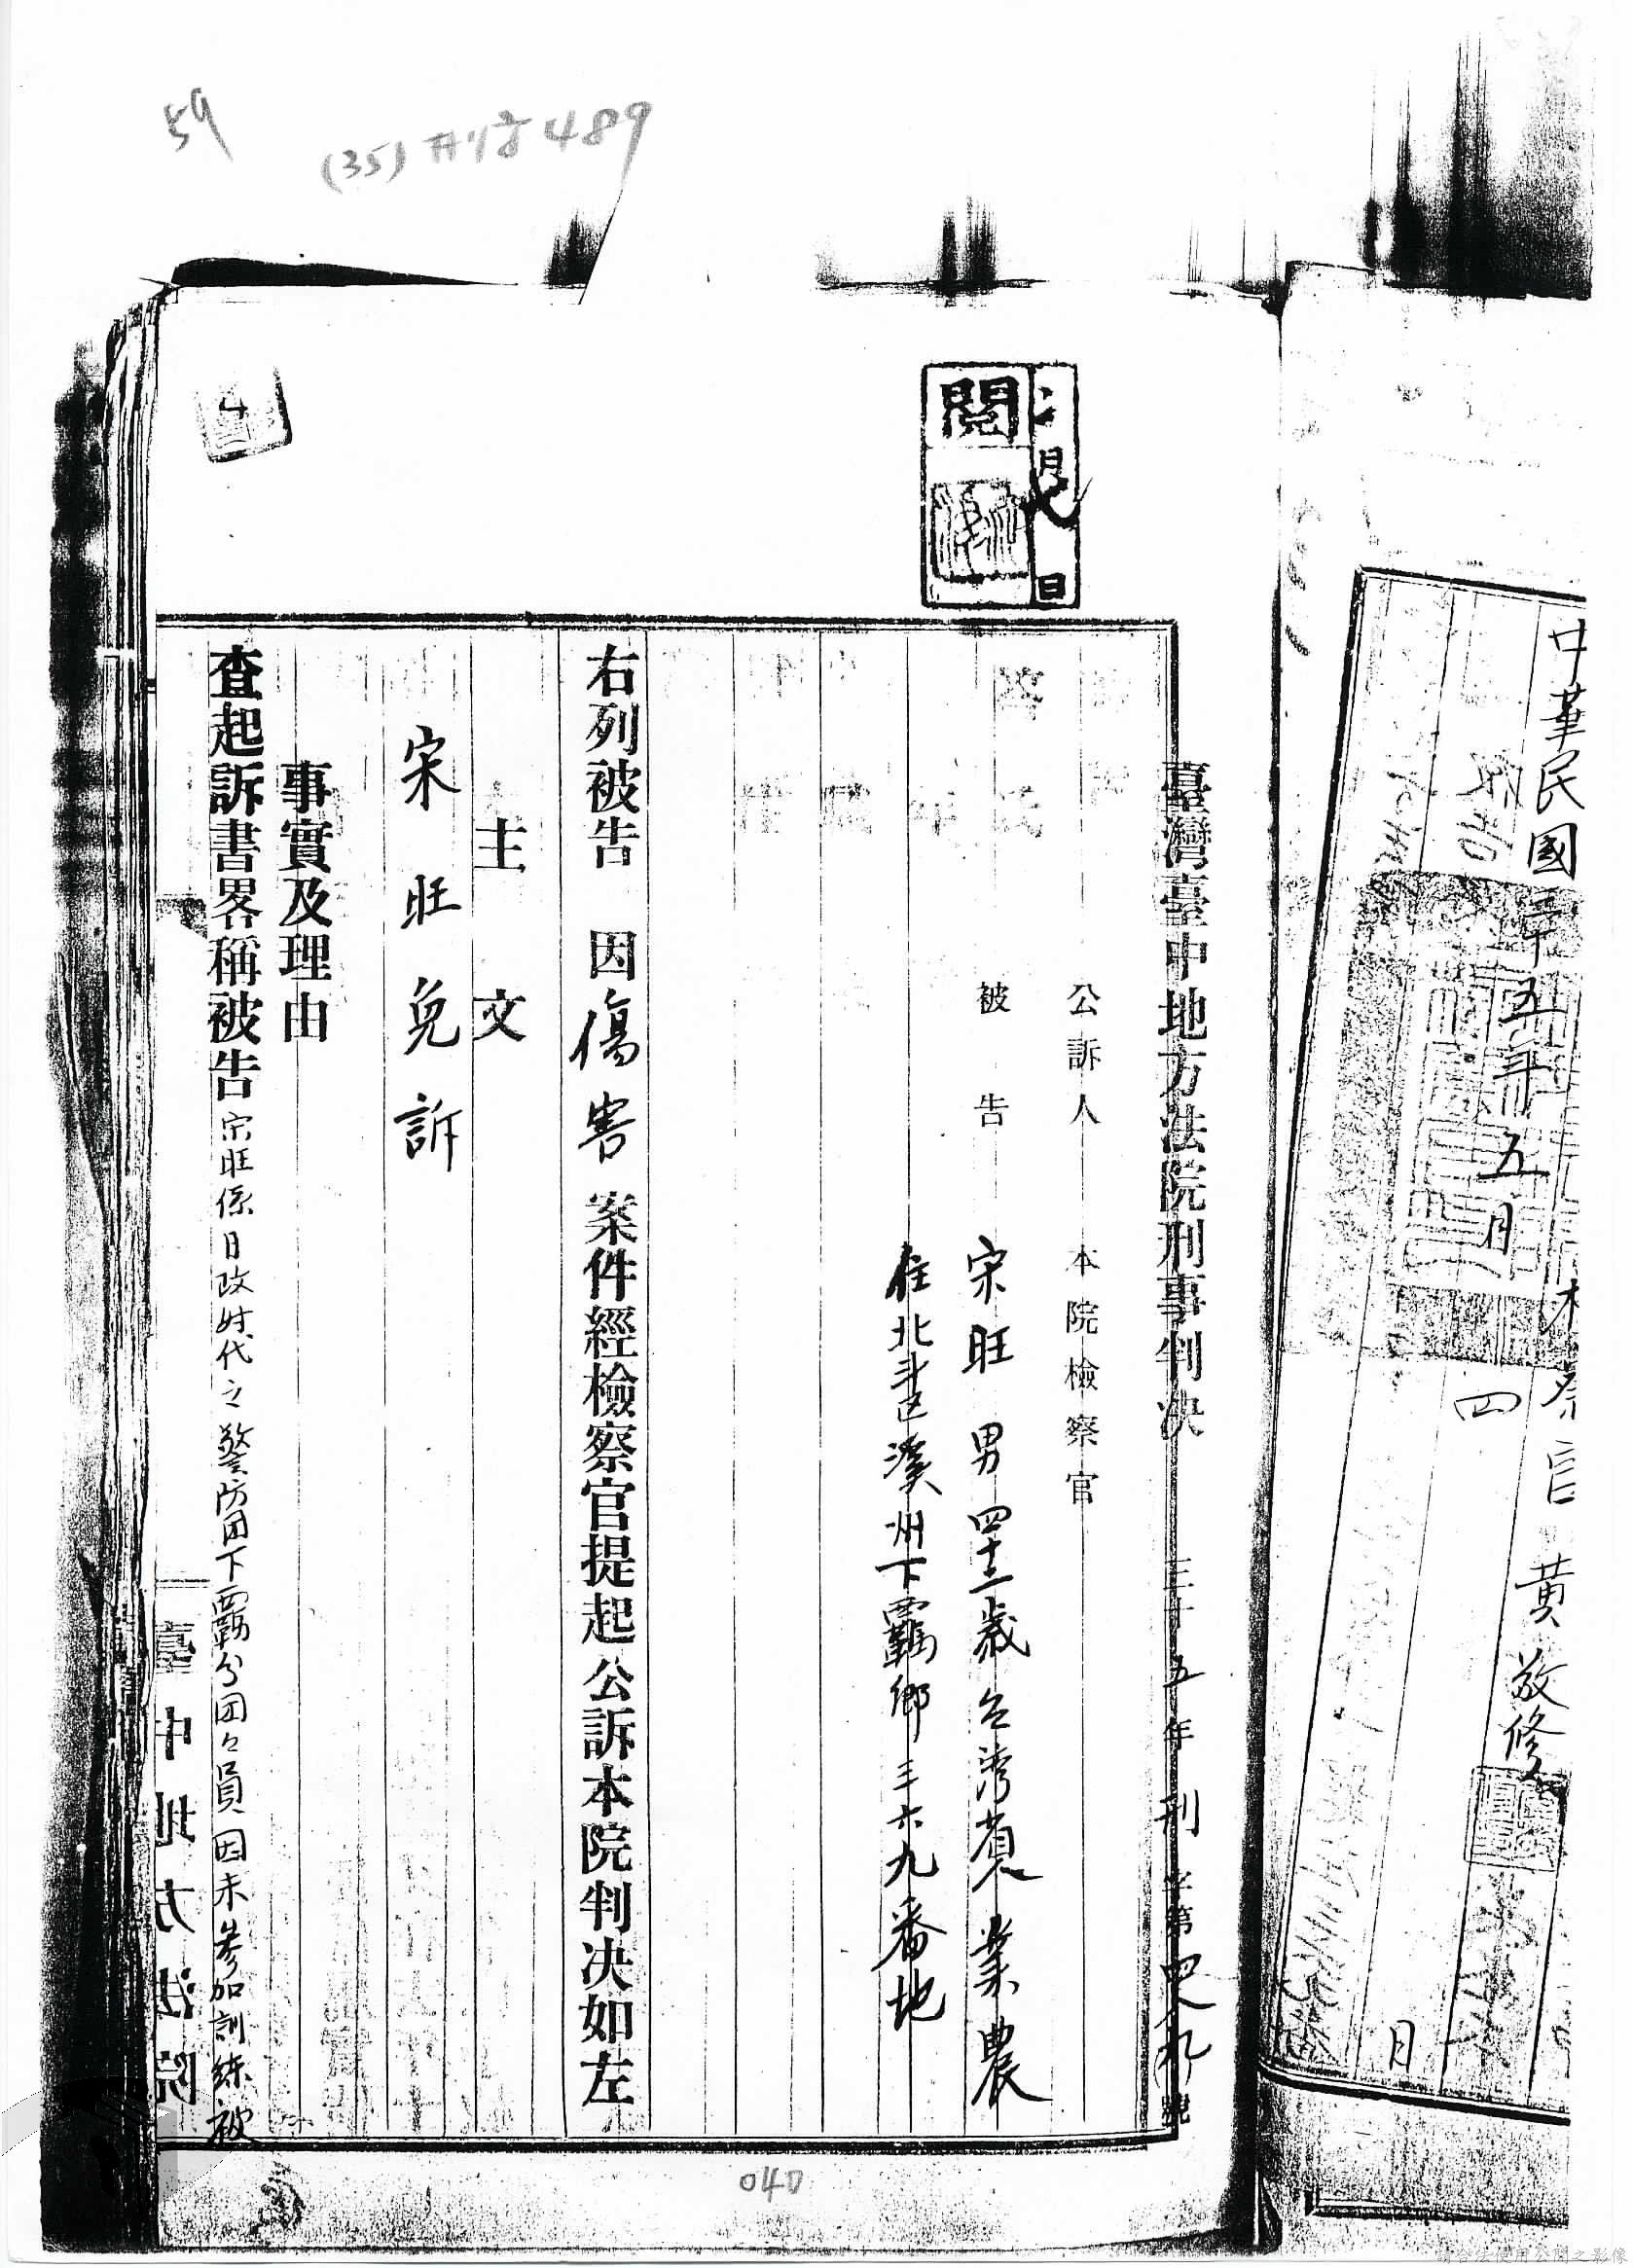 59
(35)刑字489
閱
月
日
中華民國三十五年五月
四
日
檢察官 黃敬修
臺灣臺中地方法院刑事判決 三十五年刑字第四八九號
公訴人 本院檢察官
被告 宋旺 男 四十二歲 台灣省 業農
住北斗区溪州下霸鄉三六九番地
右列被告 因傷害案件經檢察官提起公訴本院判决如左
主文
宋旺免訴
事實及理由
查起訴書畧稱被告宋旺係日政時代之警防团下霸分团々員因未參加訓練被
臺中地方法院
040